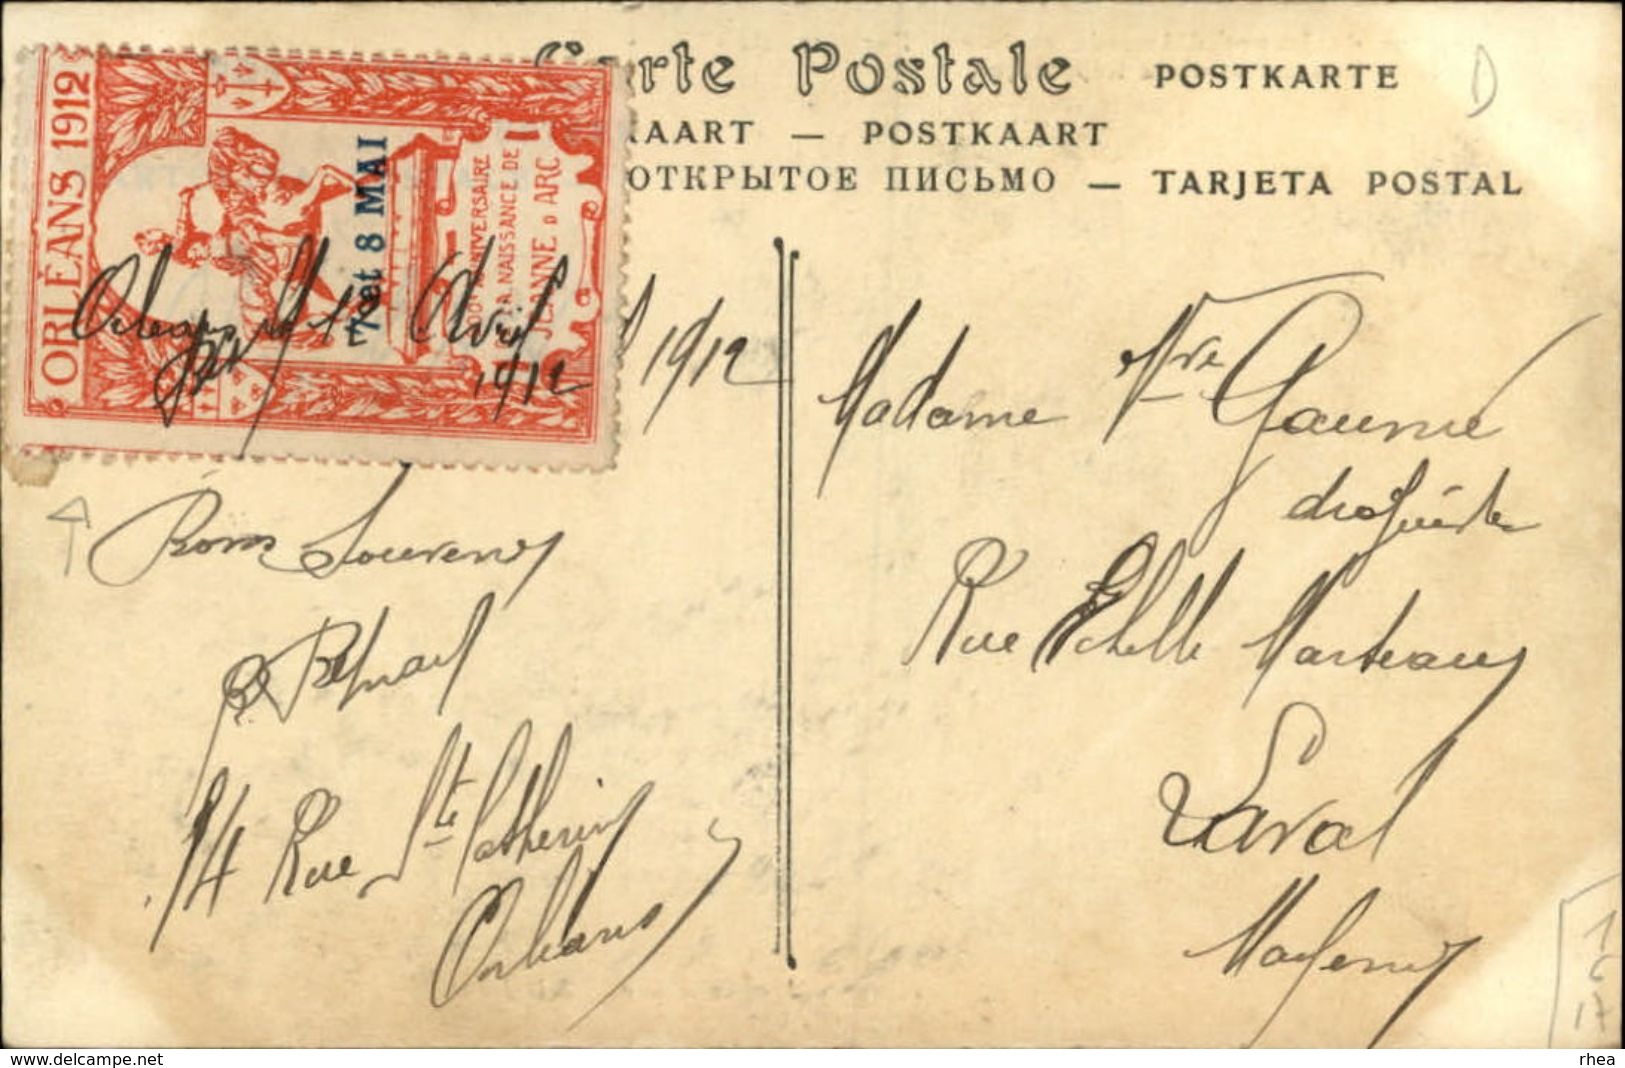 Carte Postale POSTKARTE
KAART — POSTKAART
ОТКРЫТОЕ ПИСЬМО — TARJETA POSTAL
D
ORLÉANS 1912
7 et 8 MAI
500E ANNIVERSAIRE
DE LA NAISSANCE DE
JEANNE D ARC
Orleans 12 Avril
1912
1912
Bons Souvenirs
14 Rue Ste Catherine
Orléans
Madame Vve Gaumé
droguiste
Rue Echelle Marteau
Laval
Mayenne
www.delcampe.net
rhea